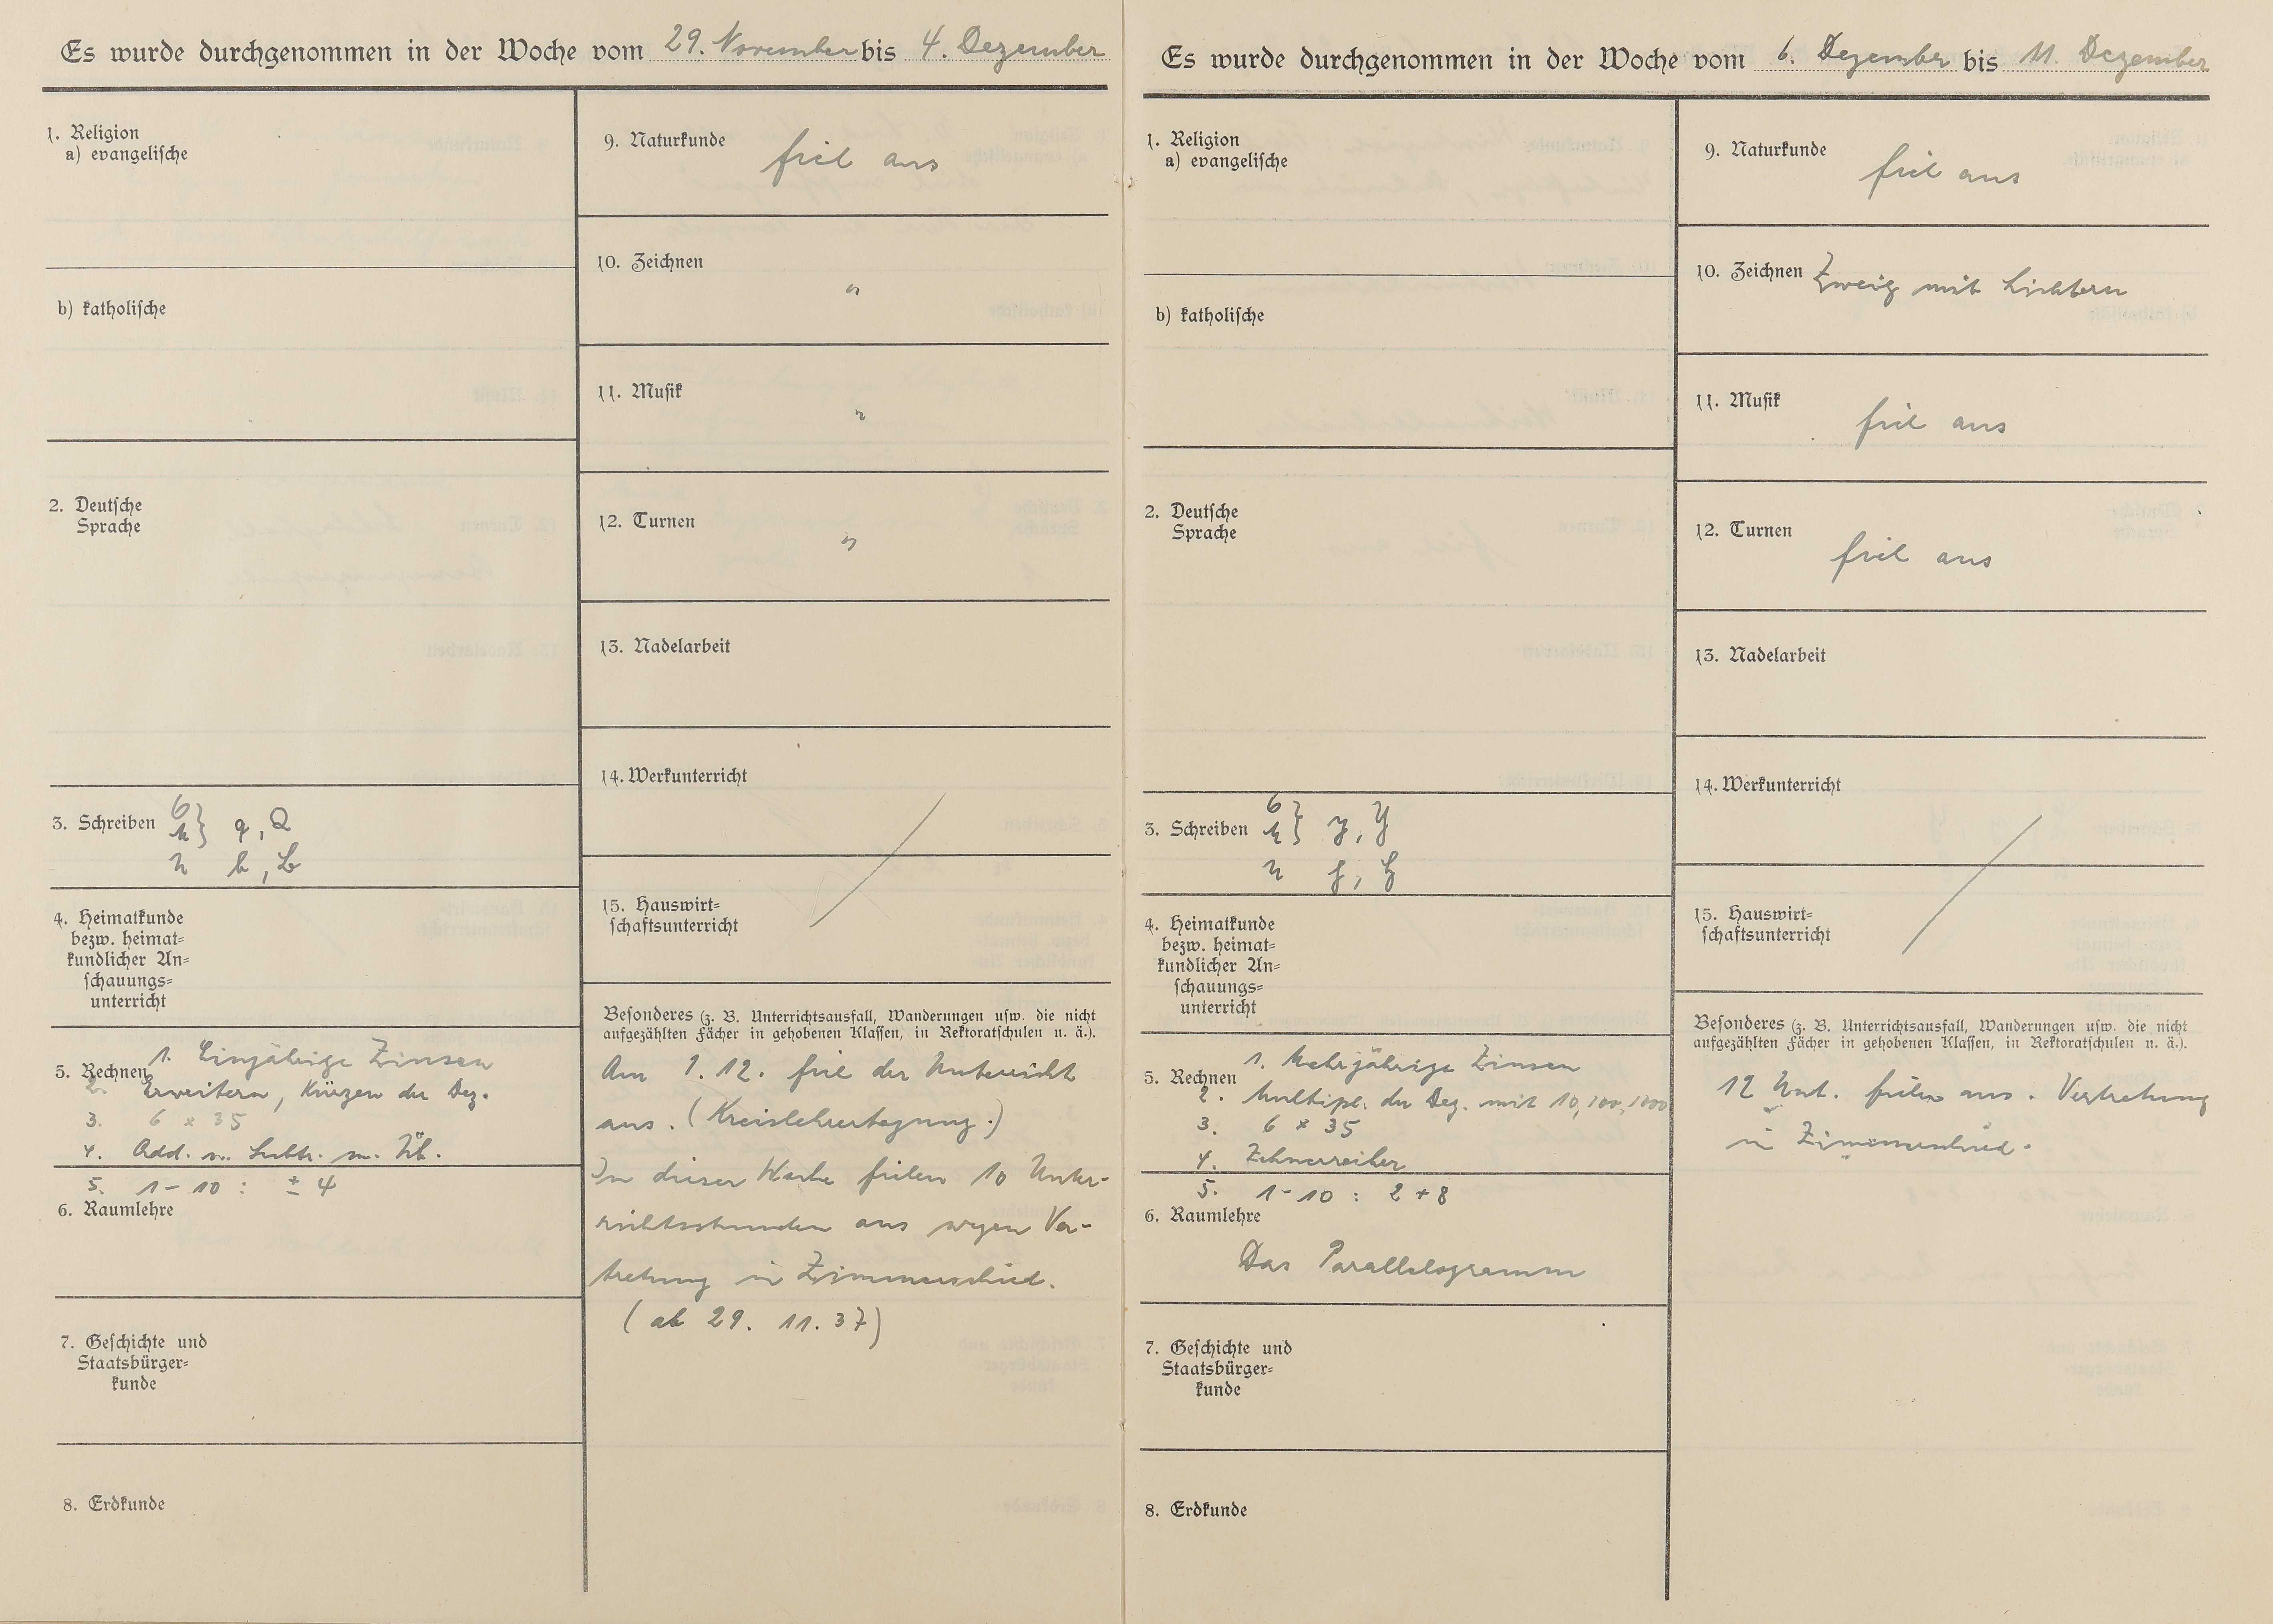 Es wurde durchgenommen in der Woche vom 29. November bis 4. Dezember
1. Religion
a) evangelische
b) katholische
2. Deutsche
Sprache
3. Schreiben
q, Q
4. Heimatkunde
bezw. heimat=
kundlicher An=
schauungs=
unterricht
1. Einjährige Zinsen
5. Rechnen
2. Erweitern, Kürzen der Dez.
3. 6 x 35
4. Add. u. Subtr. m. Üb.
5. 1-10 : ± 4
6. Raumlehre
7. Geschichte und
Staatsbürger=
kunde
8. Erdkunde
9. Naturkunde fiel aus
10. Zeichnen "
11. Musik "
12. Turnen "
13. Nadelarbeit
14. Werkunterricht
15. Hauswirt=
schaftsunterricht
Besonderes (z. B. Unterrichtsausfall, Wanderungen usw. die nicht
aufgezählten Fächer in gehobenen Klassen, in Rektoratschulen u. ä.).
Am 1.12. fiel der Unterricht
aus. (Kreislehrertagung.)
In dieser Woche fielen 10 Unter-
richtsstunden aus wegen Ver-
tretung in Zimmerschied.
(ab 29. 11. 37)
Es wurde durchgenommen in der Woche vom 6. Dezember bis 11. Dezember
1. Religion
a) evangelische
b) katholische
2. Deutsche
Sprache
3. Schreiben
y, Y
4. Heimatkunde
bezw. heimat=
kundlicher An=
schauungs=
unterricht
1. Mehrjährige Zinsen
5. Rechnen
2. Multipl. der Dez. mit 10, 100, 1000
3. 6 x 35
4. Zehnerreiher
5. 1-10 : 2 + 8
6. Raumlehre
Das Parallelogramm
7. Geschichte und
Staatsbürger=
kunde
8. Erdkunde
9. Naturkunde fiel aus
10. Zeichnen Zweig mit Lichtern
11. Musik fiel aus
12. Turnen fiel aus
13. Nadelarbeit
14. Werkunterricht
15. Hauswirt=
schaftsunterricht
Besonderes (z. B. Unterrichtsausfall, Wanderungen usw. die nicht
aufgezählten Fächer in gehobenen Klassen, in Rektoratschulen u. ä.).
12 Unt. fielen aus. Vertretung
in Zimmerschied.